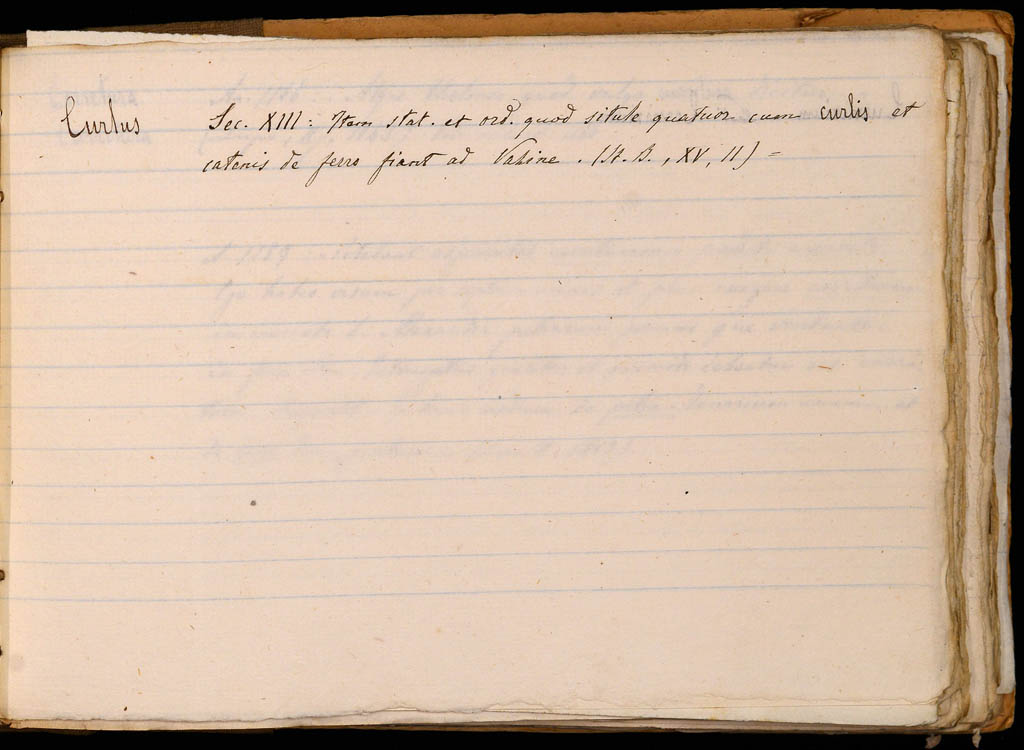 Curlus Sec. XIII: Item stat. et ord. quod situle quatuor cum curlis et
catenis de ferro fiant ad (St. B., XV, 11) =